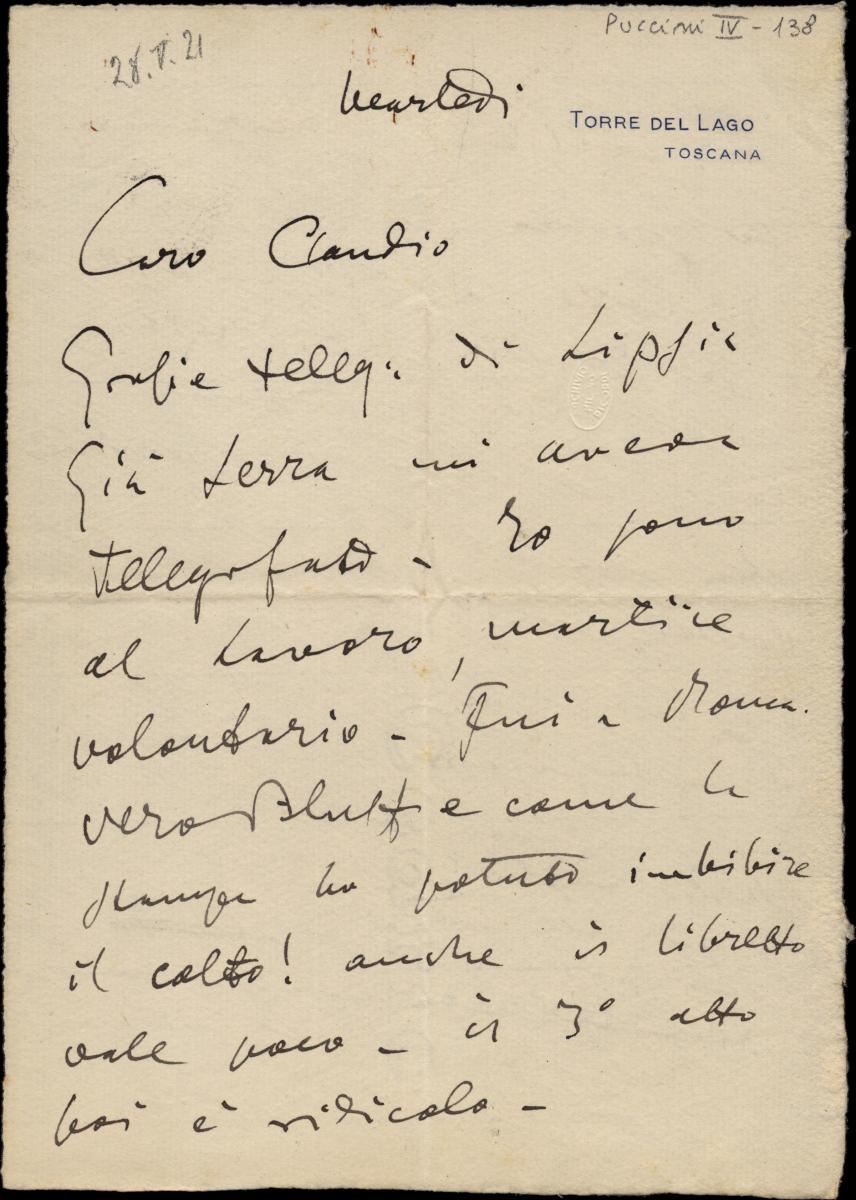 Puccini IV - 138
28.V.21
martedì
TORRE DEL LAGO
TOSCANA
Caro Claudio
Grazie teleg. di Lipsia
Già terra mi aveva
telegrafato - Io sono
al lavoro, martire
volontario - Fui a Roma.
vero Bluff e come la
stampa ha potuto imbibire
il colto! anche il libretto
vale poco - il 3º atto
poi è ridicolo -